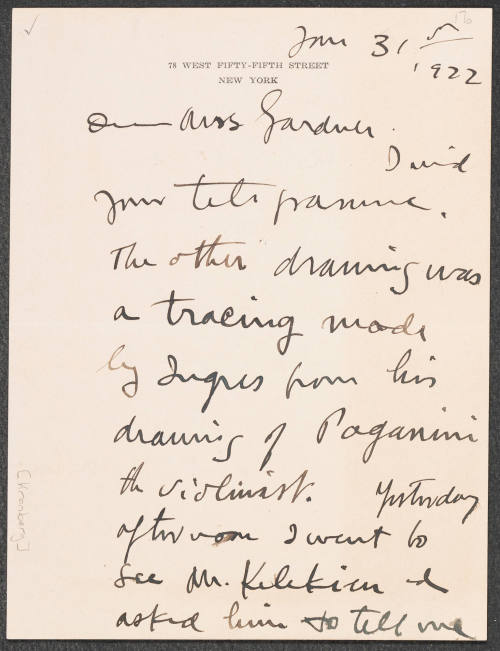 176
Jan 31st
1922
78 WEST FIFTY-FIFTH STREET
NEW YORK
Dear Mrs Gardner.
I
your telegramme.
The other drawing was
a tracing made
by Ingres from his
drawing of Paganini
the violinist. Yesterday
afternoon I went to
see Mr. Kelekian &
asked him to tell me
[Kronberg]